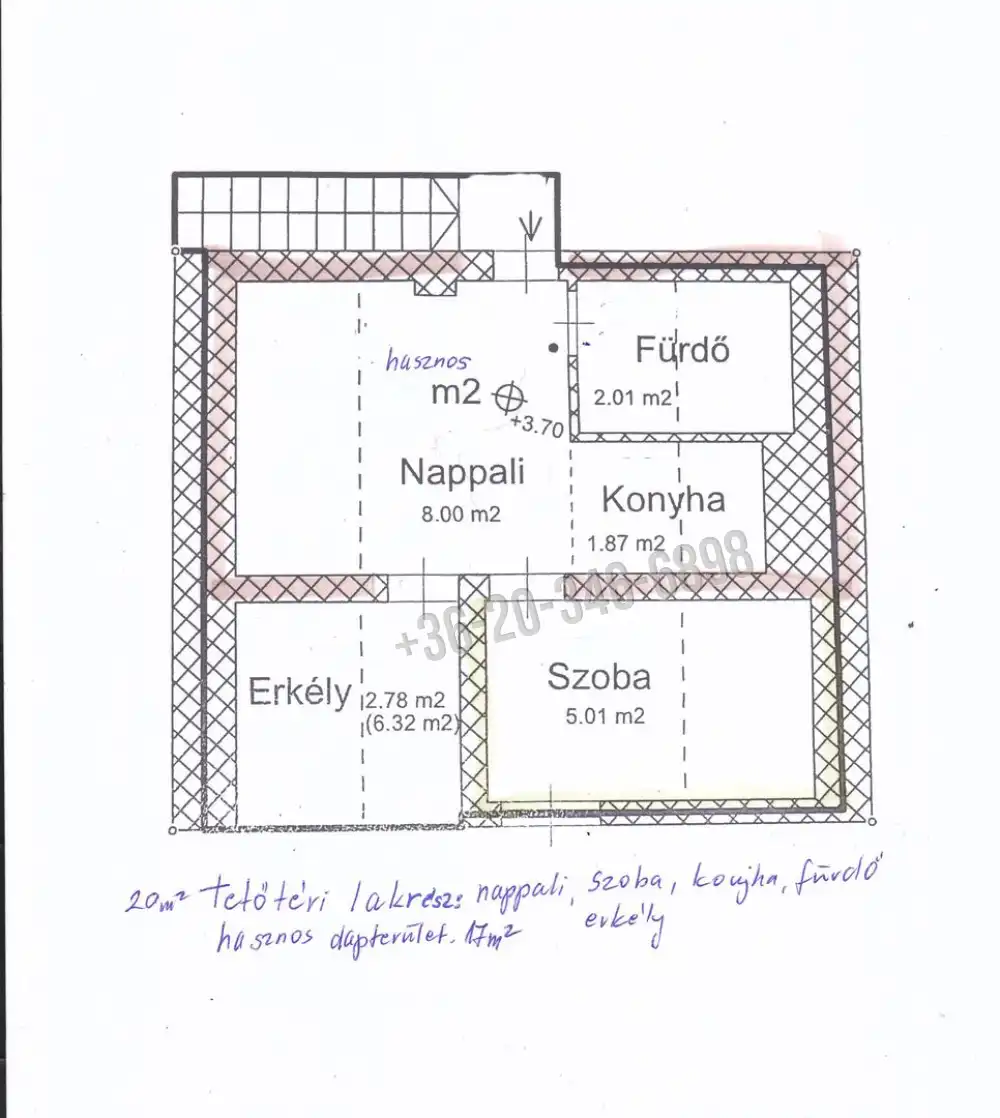 hasznos
m2
+3.70
Fürdő
2.01 m2
Nappali
8.00 m2
Konyha
1.87 m2
+36-20-346-6898
Erkély
2.78 m2
(6.32 m2)
Szoba
5.01 m2
20m² Tetőtéri lakrész: nappali, szoba, konyha, fürdő
erkély
hasznos alapterület. 17m²